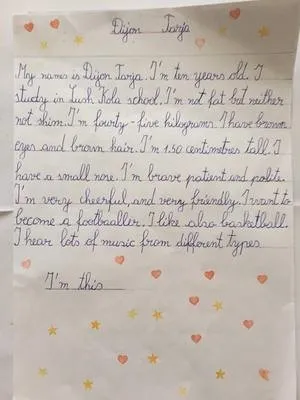 Dijon Tarja
My name is Dijon Tarja. I'm ten years old. I
study in Lush Kola school. I'm not fat but neither
not skim. I'm fourty-five kilograms. I have brown
eyes and brown hair. I'm 1.50 centimetres tall. I
have a small nore. I'm brave patient and polite.
I'm very cheerful, and very friendly. I want to
become a footbaaller. I like also basketball.
I hear lots of music from different types
I'm this